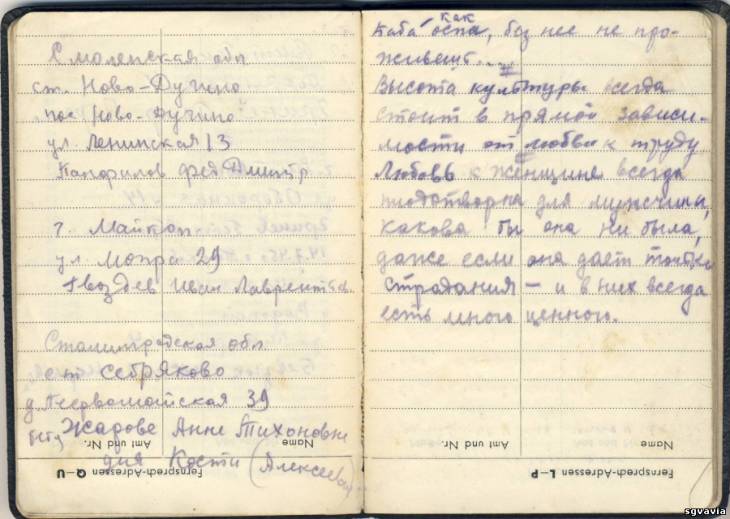 Смоленская обл
ст. Ново-Дугино
пос Ново-Дугино
ул Ленинская 13
Фед Дмитр
г. Майкоп
ул Мопра 29
Гвоздев Иван Лаврентьев.
Сталинградская обл
ст Себряково
Первомайская 39
Жарове Анне Тихоновне
для Кости (Алексеева)
Name
Amt und Nr.
Fernsprech-Adressen Q–U
как
оспа, без нее не про-
живешь...
Высота культуры всегда
стоит в прямой зависи-
мости от любви к труду
Любовь к женщине всегда
плодотворна для мужчины,
какова бы она ни была,
даже если она дает только
страдания – и в них всегда
есть много ценного.
Name
Amt und Nr.
Fernsprech-Adressen L–P
sgvavia